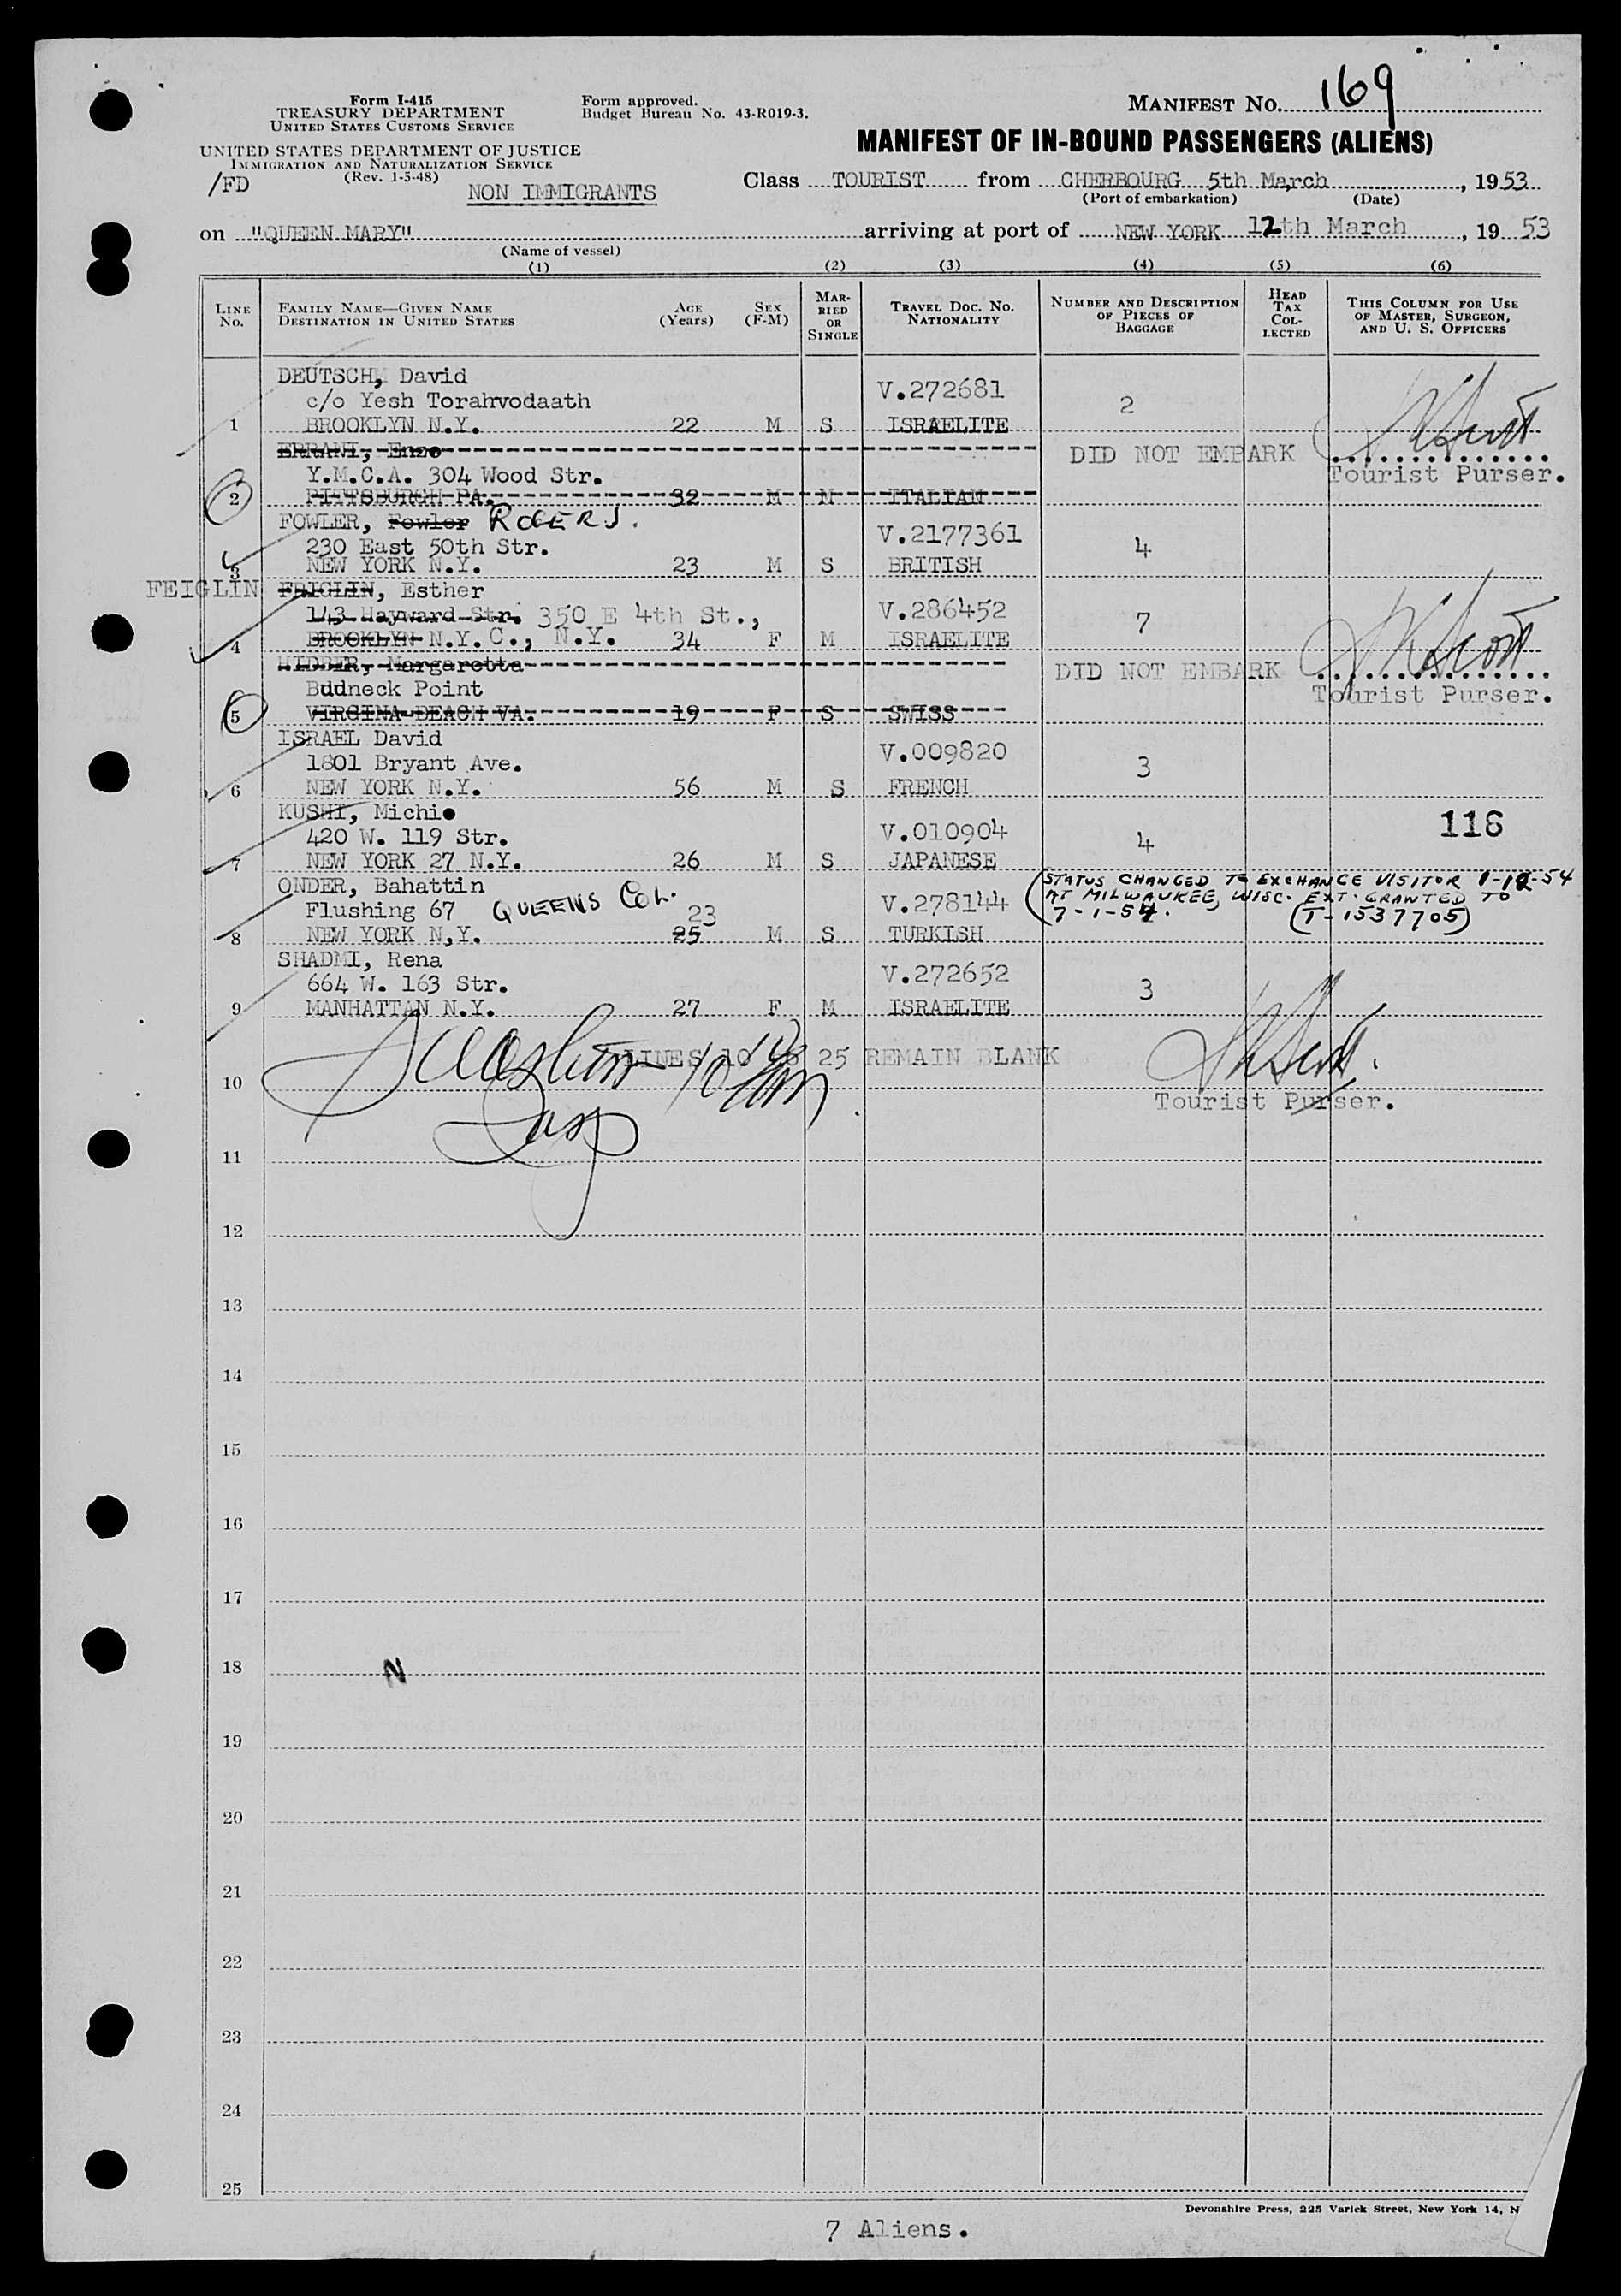 Form I-415
TREASURY DEPARTMENT
UNITED STATES CUSTOMS SERVICE
UNITED STATES DEPARTMENT OF JUSTICE
IMMIGRATION AND NATURALIZATION SERVICE
(Rev. 1-5-48)
/FD
NON IMMIGRANTS
Form approved.
Budget Bureau No. 43-R019-3.
MANIFEST NO. 169
MANIFEST OF IN-BOUND PASSENGERS (ALIENS)
Class TOURIST from CHERBOURG 5th March, 1953
(Port of embarkation) (Date)
on "QUEEN MARY" arriving at port of NEW YORK 12th March, 19 53
(Name of vessel)
(1) (2) (3) (4) (5) (6)
LINE No.
FAMILY NAME—GIVEN NAME
DESTINATION IN UNITED STATES
AGE (Years)
SEX (F-M)
MARRIED OR SINGLE
TRAVEL DOC. NO. NATIONALITY
NUMBER AND DESCRIPTION OF PIECES OF BAGGAGE
HEAD TAX COLLECTED
THIS COLUMN FOR USE OF MASTER, SURGEON, AND U. S. OFFICERS
DEUTSCH, David
c/o Yesh Torahvodaath V.272681 2
1 BROOKLYN N.Y. 22 M S ISRAELITE
ERRANI, Enzo DID NOT EMBARK
Y.M.C.A. 304 Wood Str. Tourist Purser.
2 PITTSBURGH PA. 32 M M ITALIAN
FOWLER, Fowler ROGER J.
230 East 50th Str. V.2177361 4
3 NEW YORK N.Y. 23 M S BRITISH
FEIGLIN FRIGLIN, Esther
143 Hayward Str. 350 E 4th St., V.286452 7
4 BROOKLYN N.Y. C., N.Y. 34 F M ISRAELITE
Margaretta DID NOT EMBARK
Budneck Point Tourist Purser.
5 VIRGINA BEACH VA. 19 F S SWISS
ISRAEL David
1801 Bryant Ave. V.009820 3
6 NEW YORK N.Y. 56 M S FRENCH
KUSHI, Michio 118
420 W. 119 Str. V.010904 4
7 NEW YORK 27 N.Y. 26 M S JAPANESE
ONDER, Bahattin (STATUS CHANGED TO EXCHANGE VISITOR 1-12-54
Flushing 67 QUEENS COL. 23 V.278144 AT MILWAUKEE, WISC. EXT. GRANTED TO
7-1-54. (T-1537705)
8 NEW YORK N,Y. 25 M S TURKISH
SHADMI, Rena
664 W. 163 Str. V.272652 3
9 MANHATTAN N.Y. 27 F M ISRAELITE
LINES 10 TO 25 REMAIN BLANK
10
Tourist Purser.
11
12
13
14
15
16
17
18 N
19
20
21
22
23
24
25
Devonshire Press, 225 Varick Street, New York 14, N
7 Aliens.